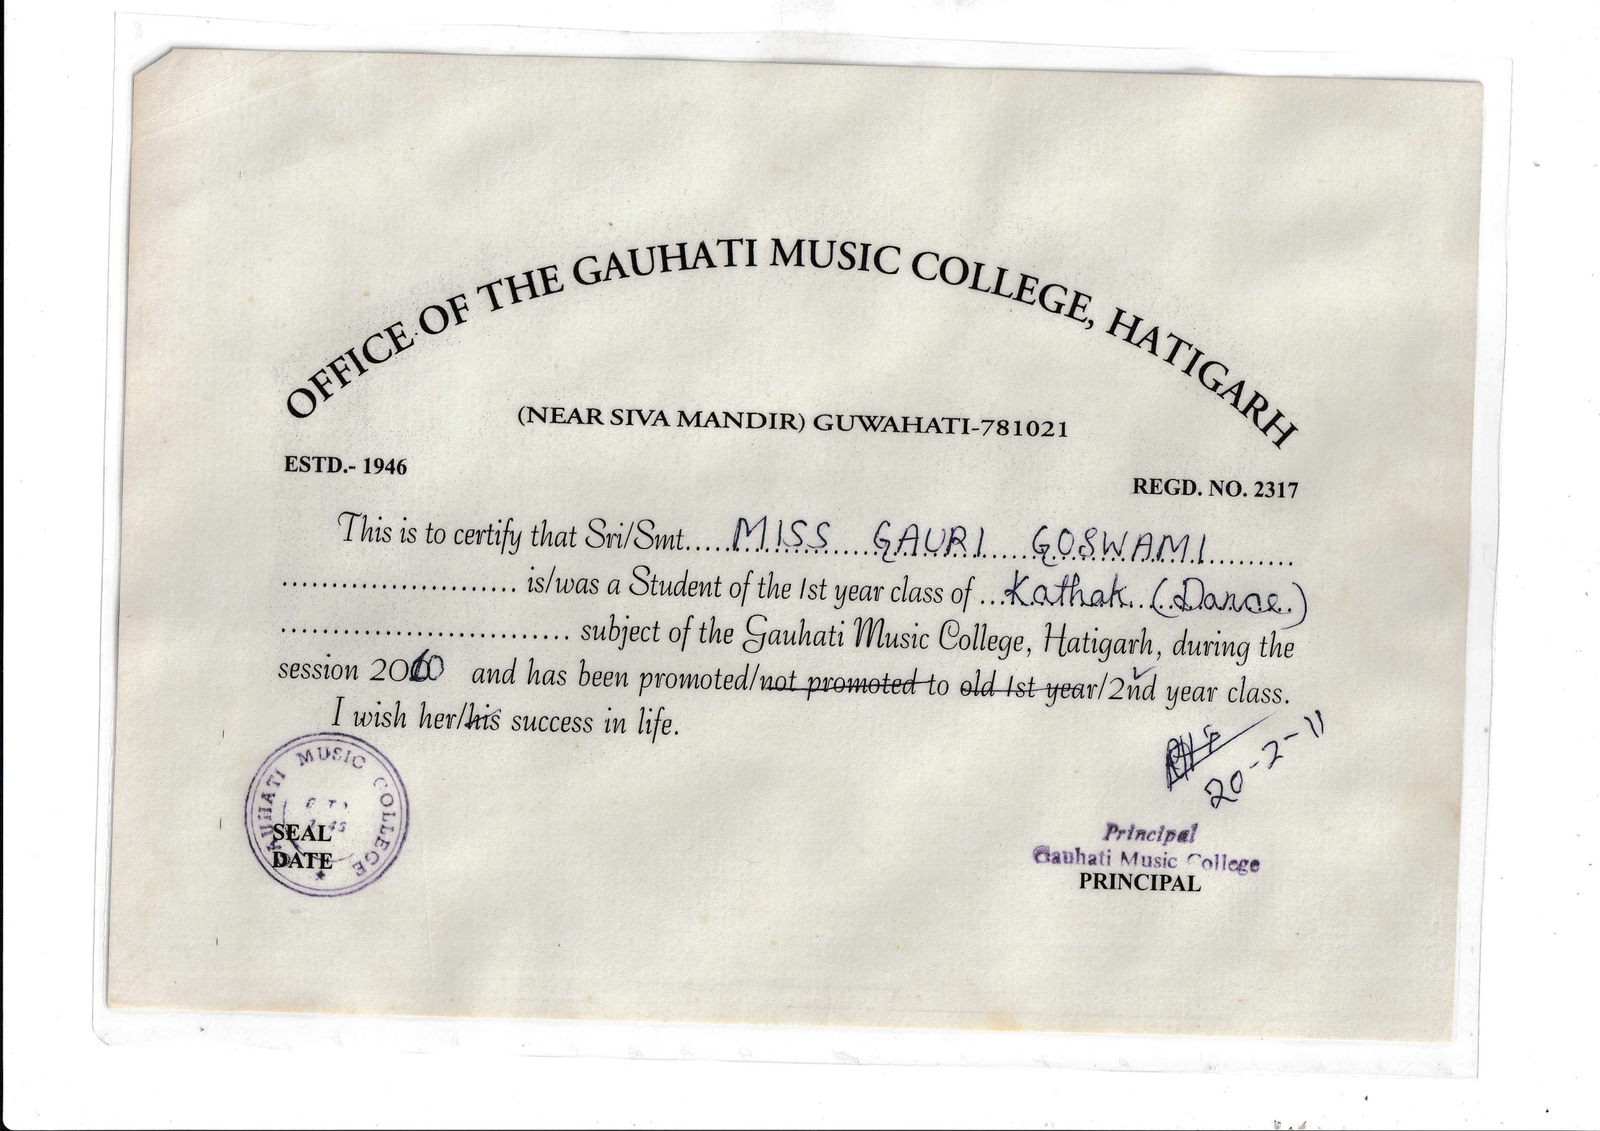 OFFICE OF THE GAUHATI MUSIC COLLEGE, HATIGARH
(NEAR SIVA MANDIR) GUWAHATI-781021
ESTD.- 1946
REGD. NO. 2317
This is to certify that Sri/Smt.....MISS GAURI GOSWAMI..........
....................... is/was a Student of the 1st year class of ...Kathak (Dance)
............................. subject of the Gauhati Music College, Hatigarh, during the
session and has been promoted/not promoted to old 1st year/2nd year class.
I wish her/his success in life.
20-2-11
GAUHATI MUSIC COLLEGE
SEAL
DATE
Principal
Gauhati Music College
PRINCIPAL